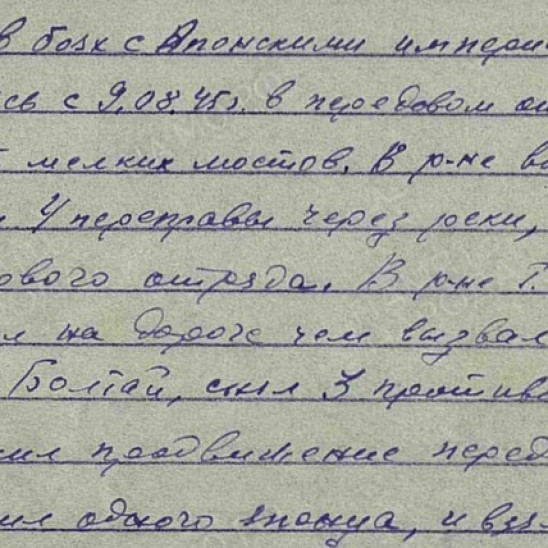 в боях с Японскими импери
сь с 9.08.45г. в передовом от
мелких мостов. В р-не
4 переправы через реки,
ового отряда. В р-не г.
л на дороге чем вызвал
Болтай, снял 3 против
ил продвижение перед
ил одного японца, и взял